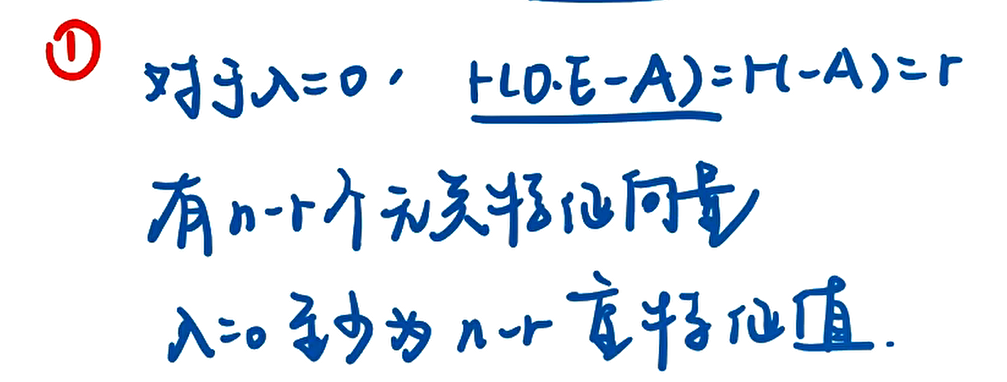 ① 对于λ=0, r(0·E-A)=r(-A)=r
有n-r个无关特征向量
λ=0至少为n-r重特征值.